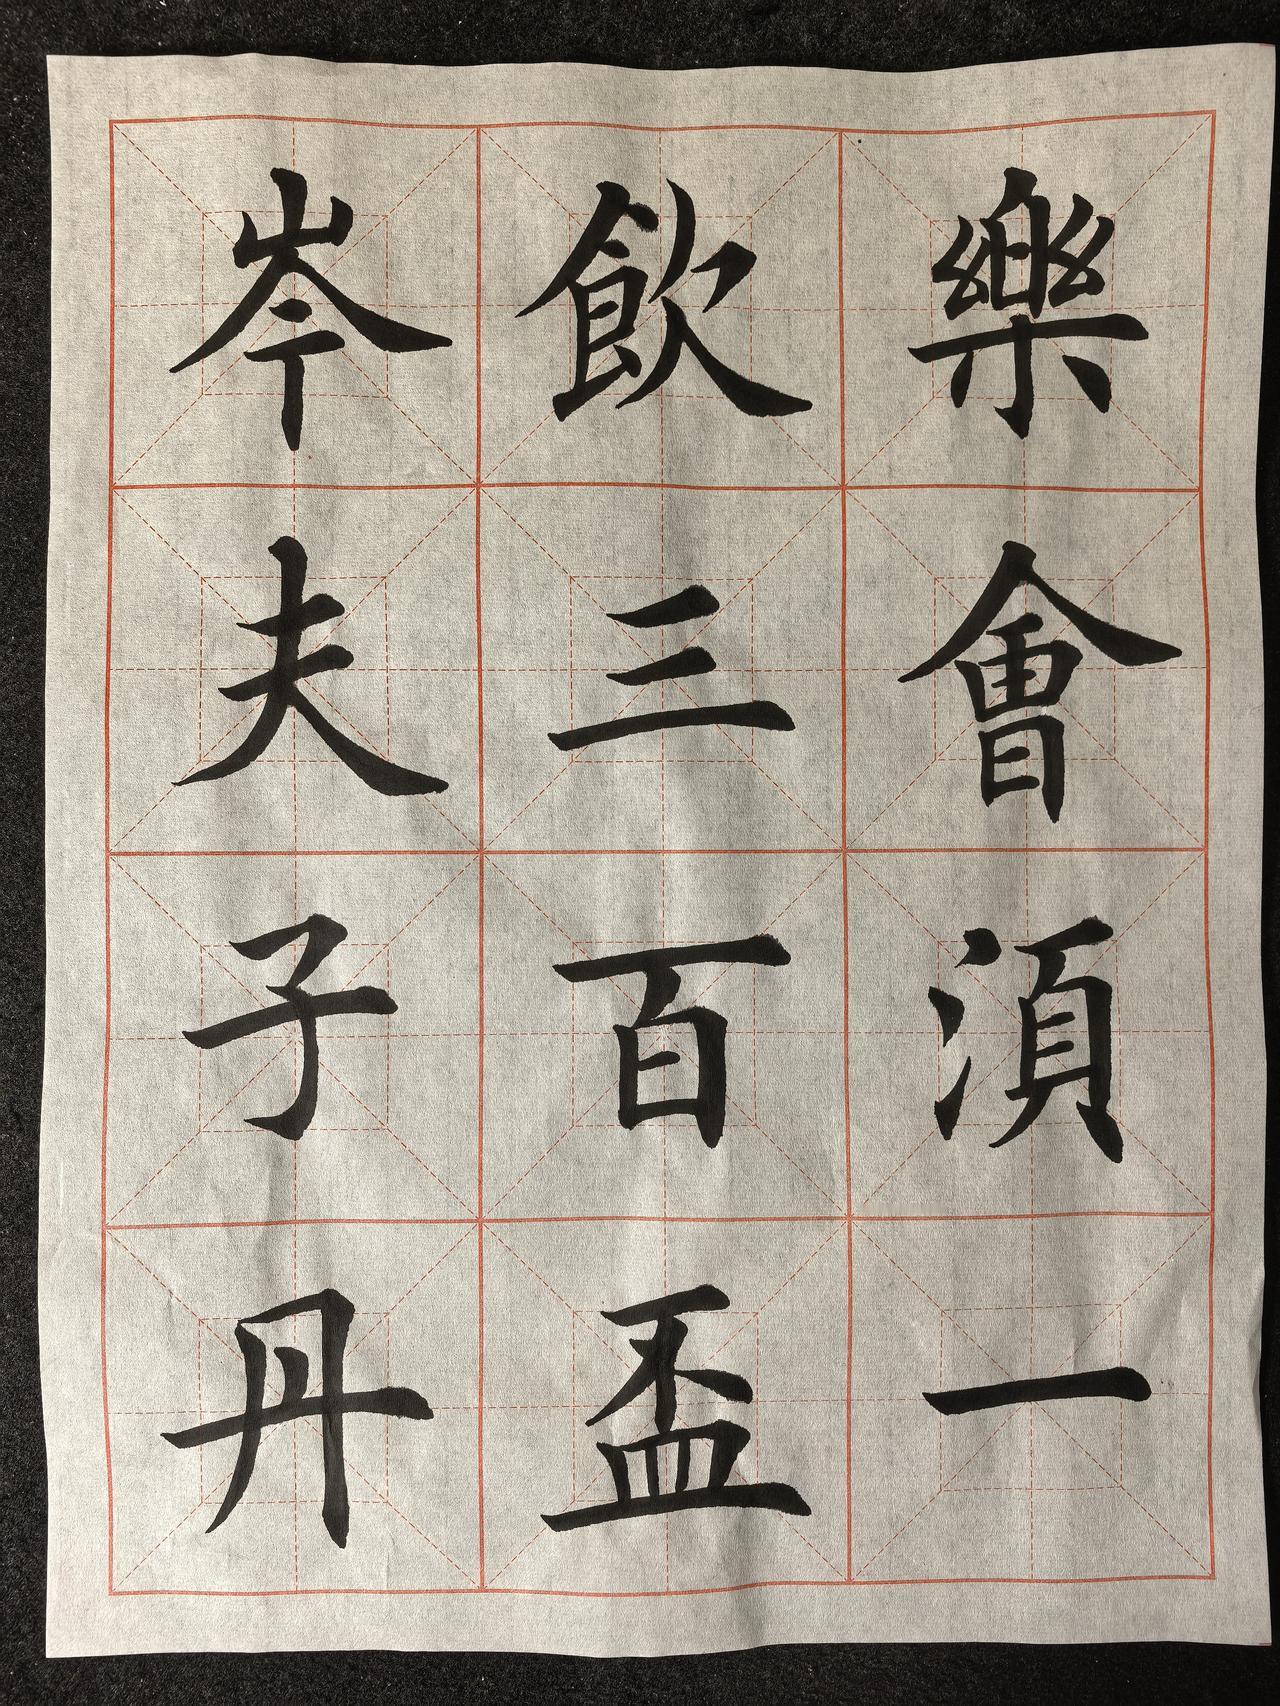 樂會須一
飲三百盃
岑夫子丹